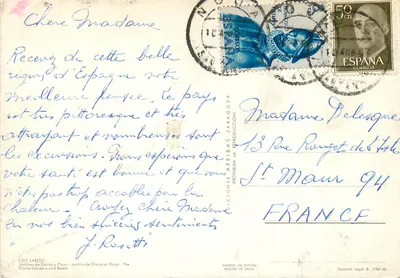 Chère Madame
Recevez de cette belle
région d'Espagne notre
meilleure pensée. Le pays
est très pittoresque et très
attrayant et nombreuses sont
les excursions. Nous espérons que
votre santé est bonne et que vous
n'êtes pas trop accablée par la
chaleur. Croyez Chère Madame
en nos bien sincères sentiments
J. Rosetti
50 CTS
ESPAÑA
CORREOS
ESPAÑA
Madame Delesque
13 Rue Rouget de l'Isle
St Maur 94
FRANCE
EDICIONES ARRIBAS ZARAGOZA
PROHIBIDA LA REPRODUCCION
LAREDO